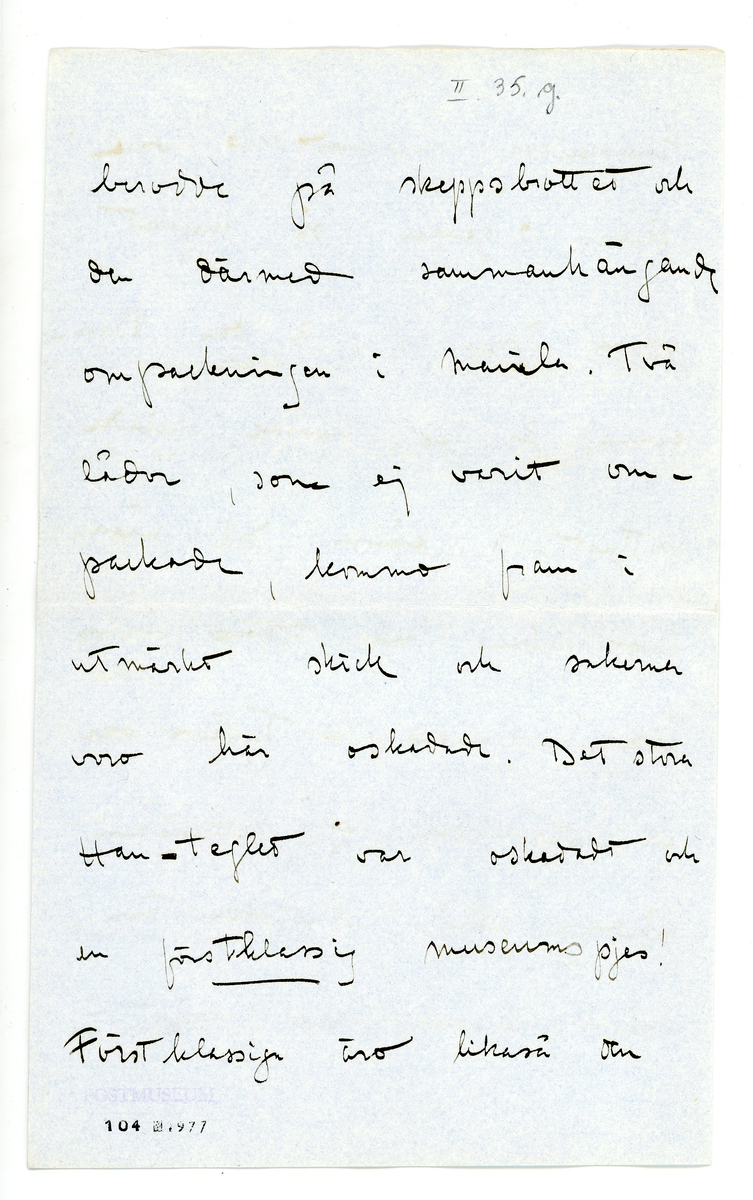 II. 35. g.
berodde på skeppsbrottet och
den därmed sammanhängande
ompackningen i Manila. Två
lådor, som ej varit om-
packade, kommo fram i
utmärkt skick och sakerna
voro här oskadade. Det stora
Han-teglet var oskadadt och
en förstklassig museumspjes!
Förstklassiga äro likaså den
POSTMUSEUM
104 .977